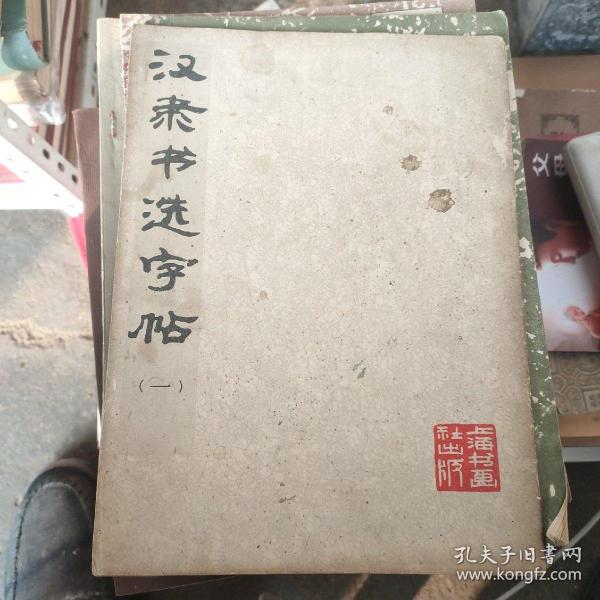 汉隶书选字帖
（一）
上海书画
社出版
父母
孔夫子旧书网
www.kongfz.com